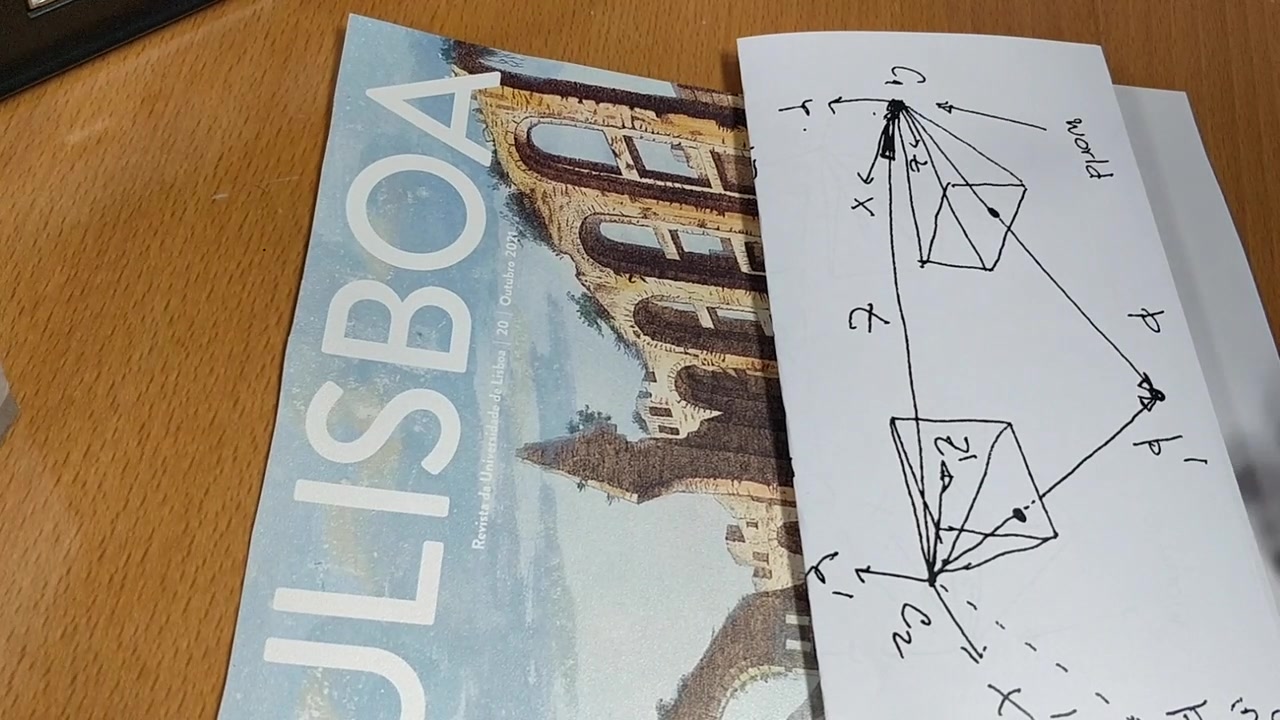 ULISBOA
Revista da Universidade de Lisboa | 20 | Outubro 2021
world
C1
Y
X
Z
P
P'
Z'
Y'
C2
X